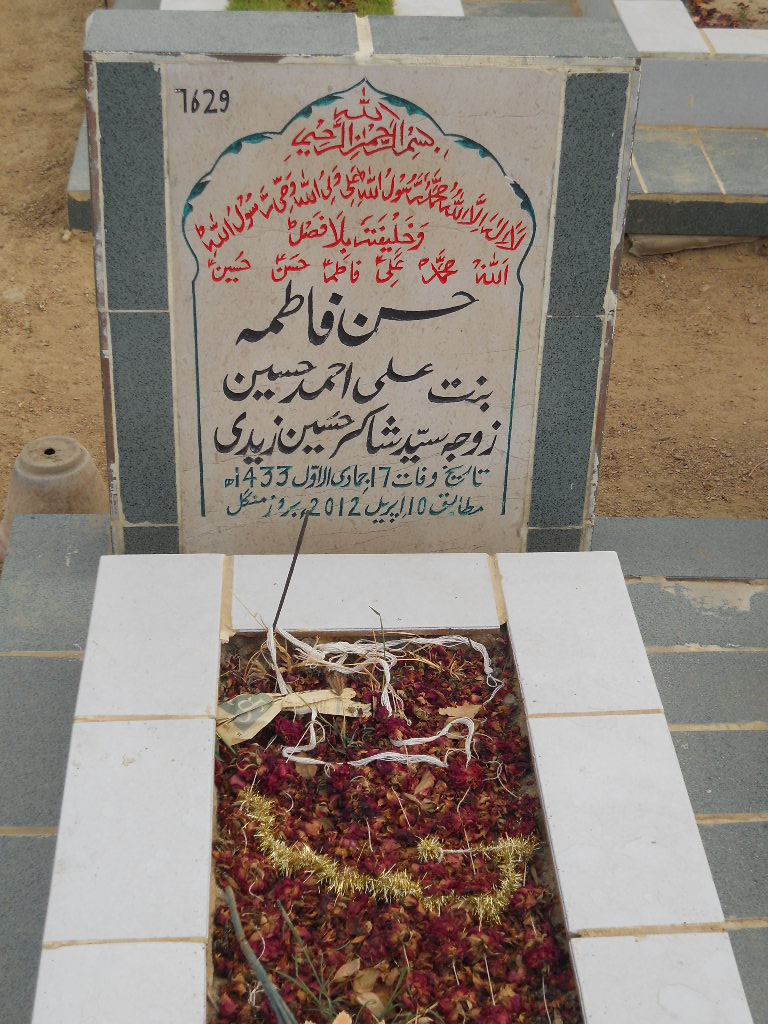 7629
بسم الله الرحمن الرحیم
لا اله الا الله محمد رسول الله علی ولی الله وصی رسول الله
وخلیفته بلا فصل
الله محمد علی فاطمہ حسن حسین
حسن فاطمہ
بنت علی احمد حسین
زوجہ سیّد شاکر حُسین زیدی
تاریخ وفات 17 جمادی الاوّل 1433ھ
مطابق 10 اپریل 2012ء بروز منگل